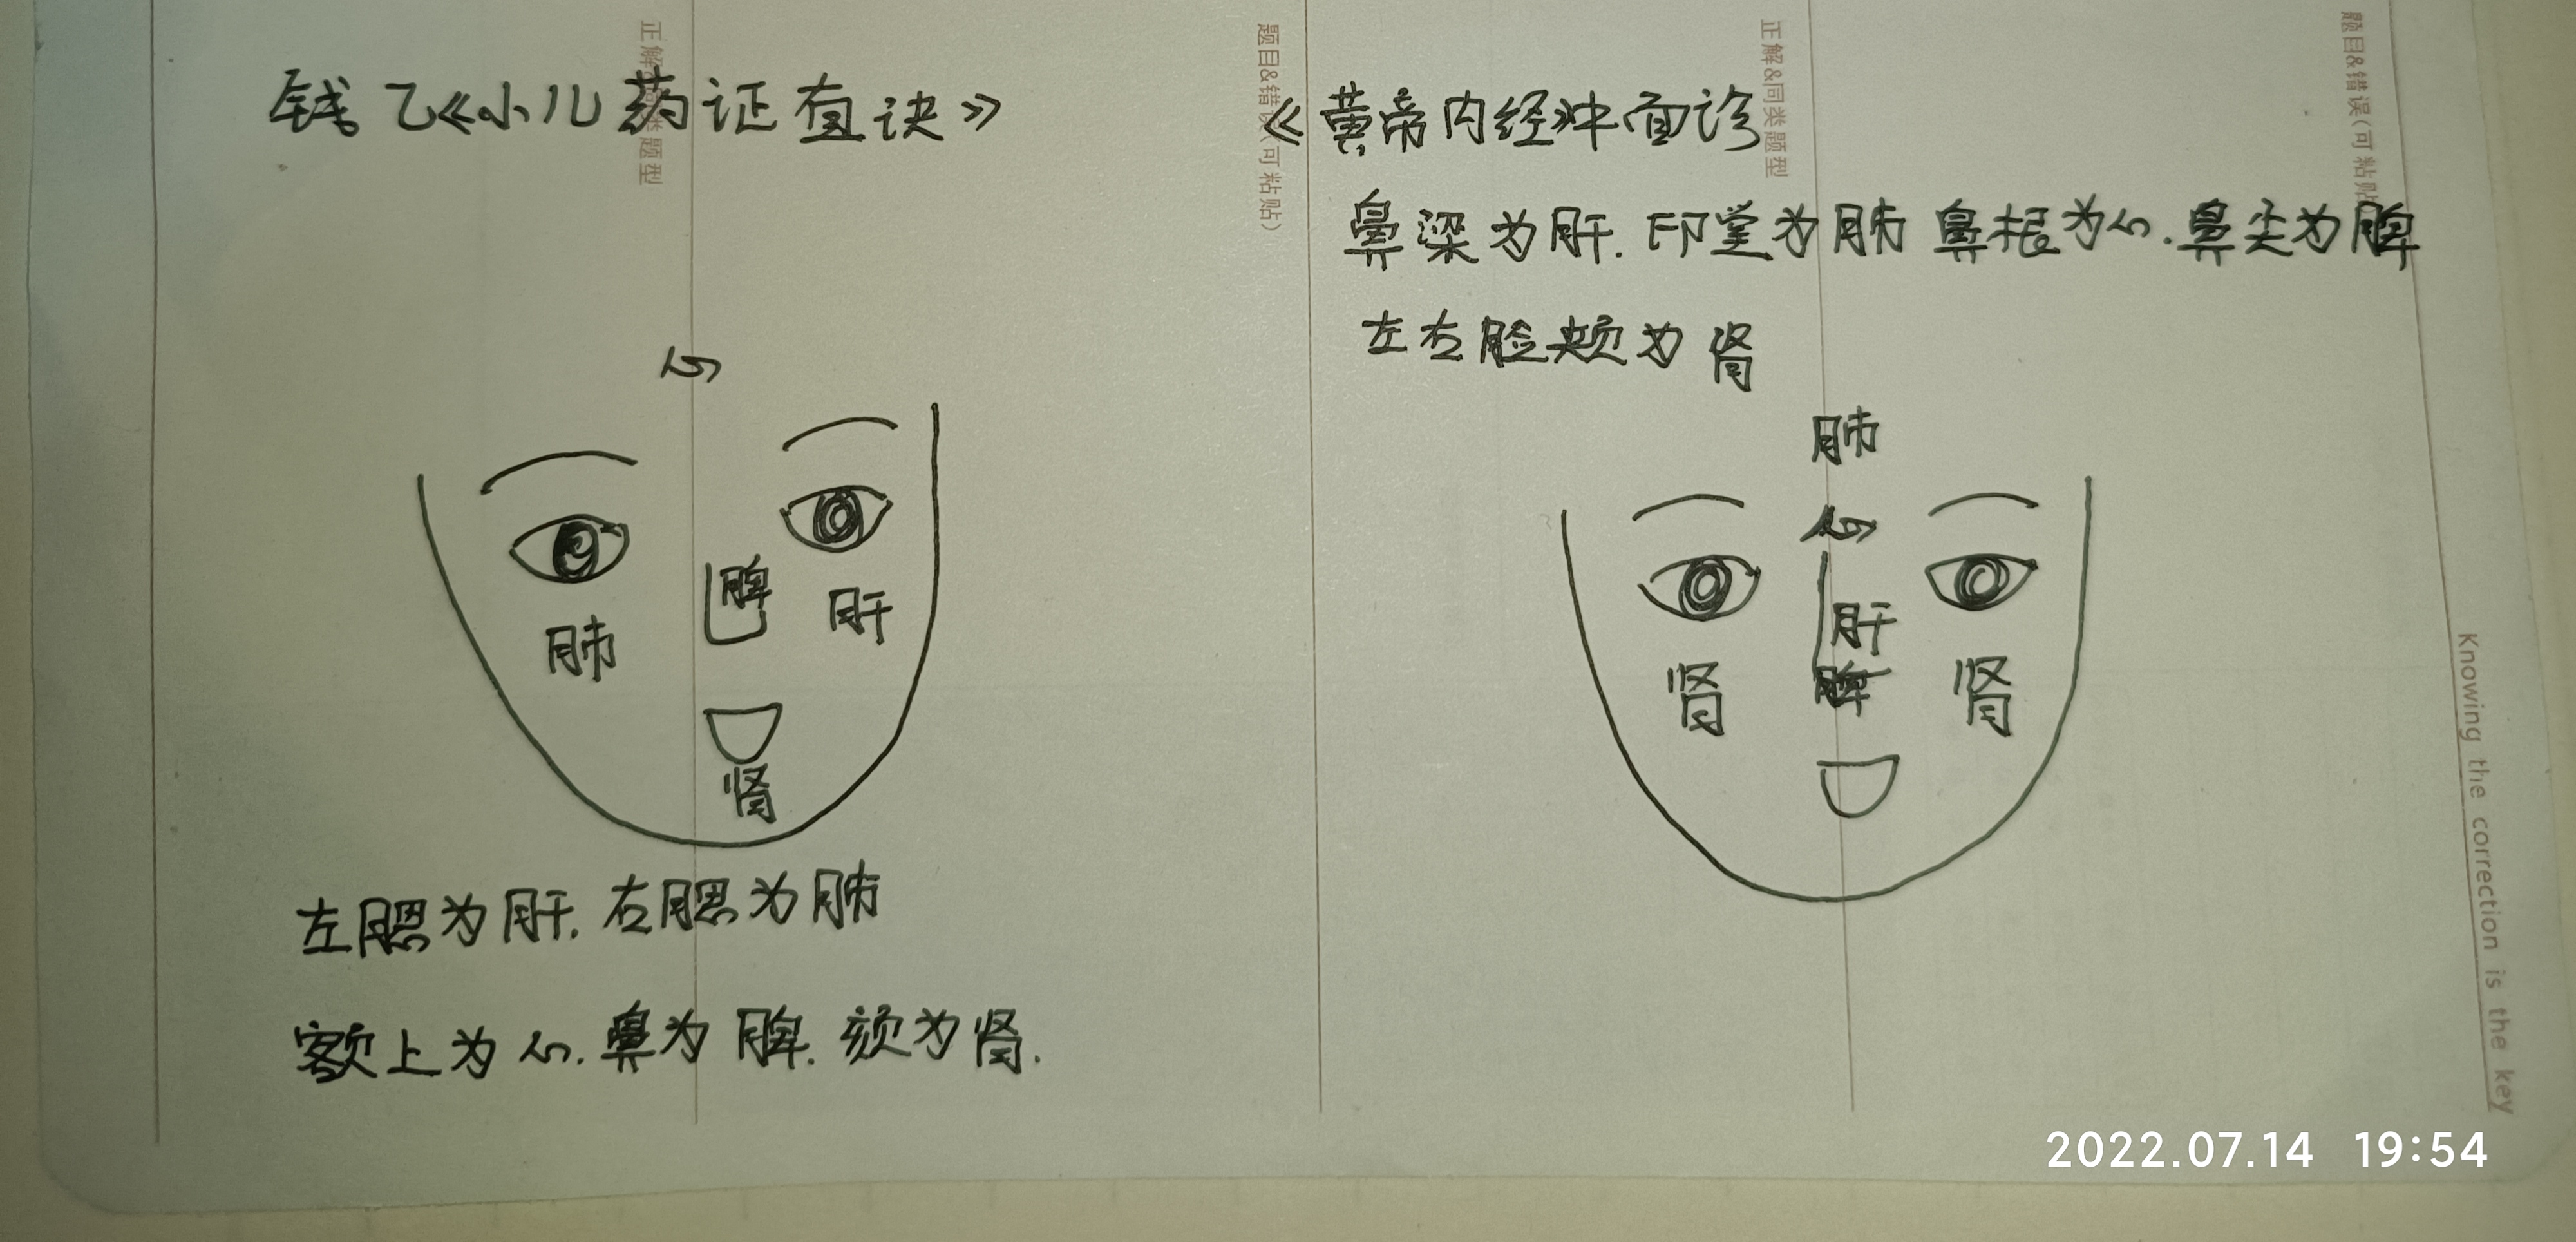 钱乙《小儿药证直诀》
心
脾
肝
肺
肾
左腮为肝.右腮为肺
额上为心.鼻为脾.颏为肾.
《黄帝内经》中面诊
鼻梁为肝.印堂为肺 鼻根为心.鼻尖为脾
左右脸颊为肾
肺
心
肝
肾 脾 肾
正解&同类题型
题目&错误(可粘贴)
正解&同类题型
题目&错误(可粘贴
Knowing the correction is the key
2022.07.14 19:54